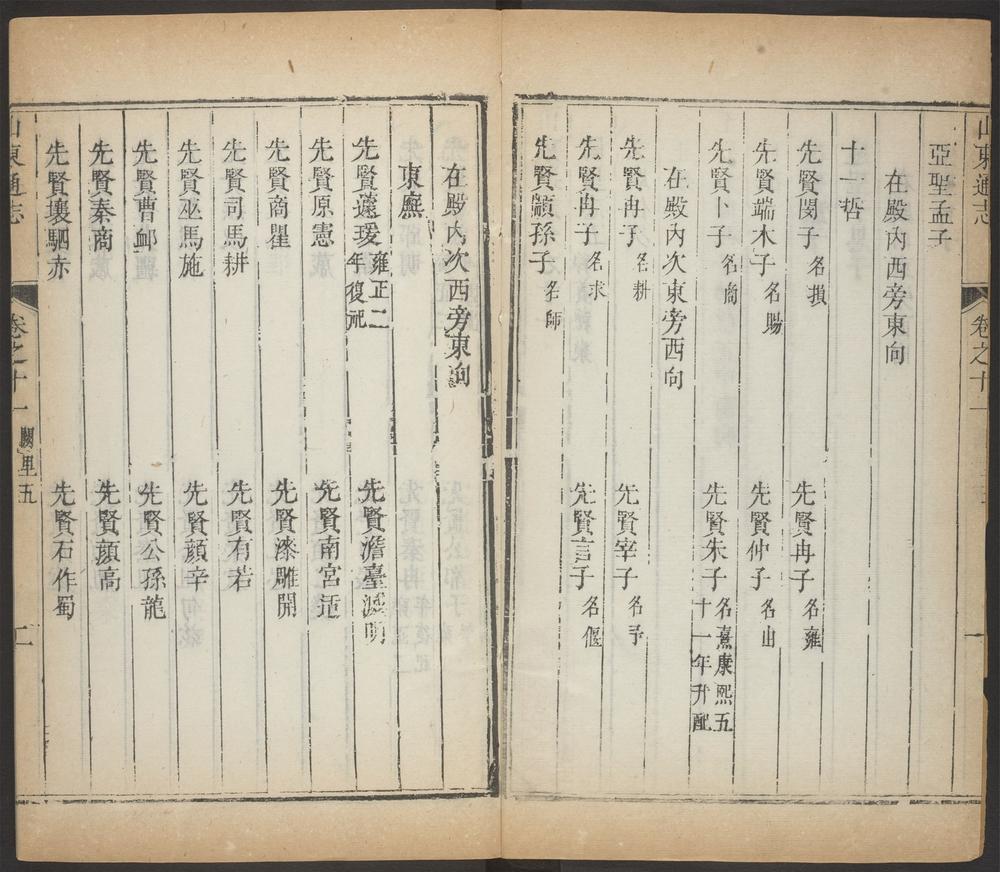 山東通志 卷之十一
亞聖孟子
在殿內西旁東向
十一哲
先賢閔子 名損 先賢冉子 名雍
先賢端木子 名賜 先賢仲子 名由
先賢卜子 名商 先賢朱子 名熹康熙五十一年升配
在殿內次東旁西向
先賢冉子 名耕 先賢宰子 名予
先賢冉子 名求 先賢言子 名偃
先賢顓孫子 名師
在殿內次西旁東向
東廡
先賢蘧瑗 雍正二年復祀 先賢澹臺滅明
先賢原憲 先賢南宮适
先賢商瞿 先賢漆雕開
先賢司馬耕 先賢有若
先賢巫馬施 先賢顏辛
先賢曹卹 先賢公孫龍
先賢秦商 先賢顏高
先賢壤駟赤 先賢石作蜀
山東通志 卷之十一 闕里五 二